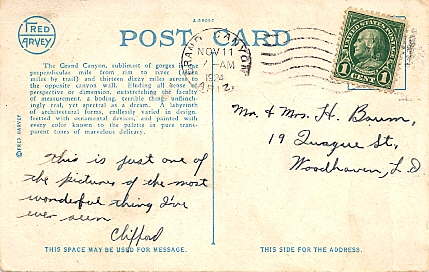 A-88082
FRED HARVEY
POST CARD
GRAND CANYON
NOV 11
7-AM
1924
ARIZ.
UNITED STATES POSTAGE
FRANKLIN
1 CENT 1
The Grand Canyon, sublimest of gorges is one
perpendicular mile from rim to river (seven
miles by trail) and thirteen dizzy miles across to
the opposite canyon wall. Eluding all sense of
perspective or dimension, outstretching the faculty
of measurement, a boding, terrible thing, unflinch-
ingly real, yet spectral as a dream. A labyrinth
of architectural forms, endlessly varied in design,
fretted with ornamental devices, and painted with
every color known to the palette in pure trans-
parent tones of marvelous delicacy.
© FRED HARVEY
This is just one of
the pictures of the most
wonderful thing I've
ever seen
Clifford
Mr. & Mrs. H. Baum,
19 Tuague St,
Woodhaven, L.I.
THIS SPACE MAY BE USED FOR MESSAGE.
THIS SIDE FOR THE ADDRESS.